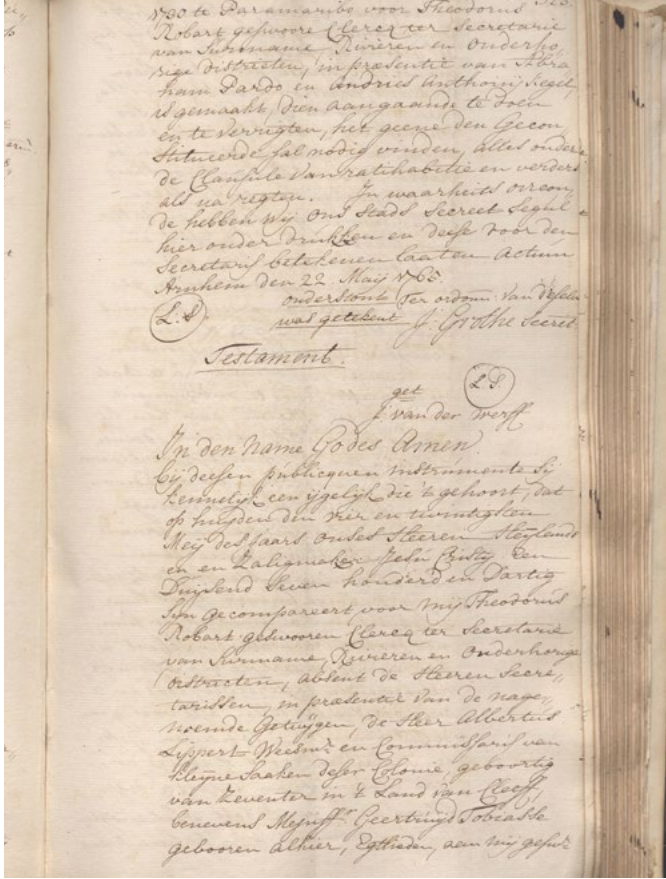 1730 te Paramaribo voor Theodorus
Robart geswoore Clercq ter Secretarie
van Suriname, Rivieren en onderho„
rige districten, in præsentie van Abra„
ham Pardo en Andries Anthonij Kegel,
is gemaakt, dien aangaande te doen
en te verrigten, het geene den Gecon„
stitueerde sal nodig vinden, alles onder
de Clausule van ratihabitie en verders
als na regten. In waarheits oircon„
de hebben wij ons Stads Secreet Segul
hier onder drukken en deese voor den
Secretaris betekenen laaten Actum
Arnhem den 22 Maij 1765.
onderstont Ter ordonn: van deselve
was getekent J: Grothe Secret.
L.S.
Testament.
get L.S.
J: van der Werff
In den Name Godes Amen
bij deesen publicquen instrumente Sij
kennelijk een ijgelijk die 't gehoort, dat
op huijden den vier en twintigsten
Meij des Jaars onses Heeren Heijlands
en Zaligmaker Jesu Cristy Een
Duijsend Seven honderd en Dartig
Sijn gecompareert voor mij Theodorus
Robart geswooren Clercq ter Secretarie
van Suriname, Rivieren en Onderhorige
Districten, absent de Heeren Secre„
tarissen, in præsentie van de nage„
noemde Getuijgen, de Heer Albertus
Lippert Weesmr. en Commissaris van
kleijne Saaken deser Colonie, geboortig
van Zeventer in 't Land van Cleeff,
benevens Mejuffr. Geertruijd Tobiasse
gebooren alhier, Egtlieden, aan mij geswr.